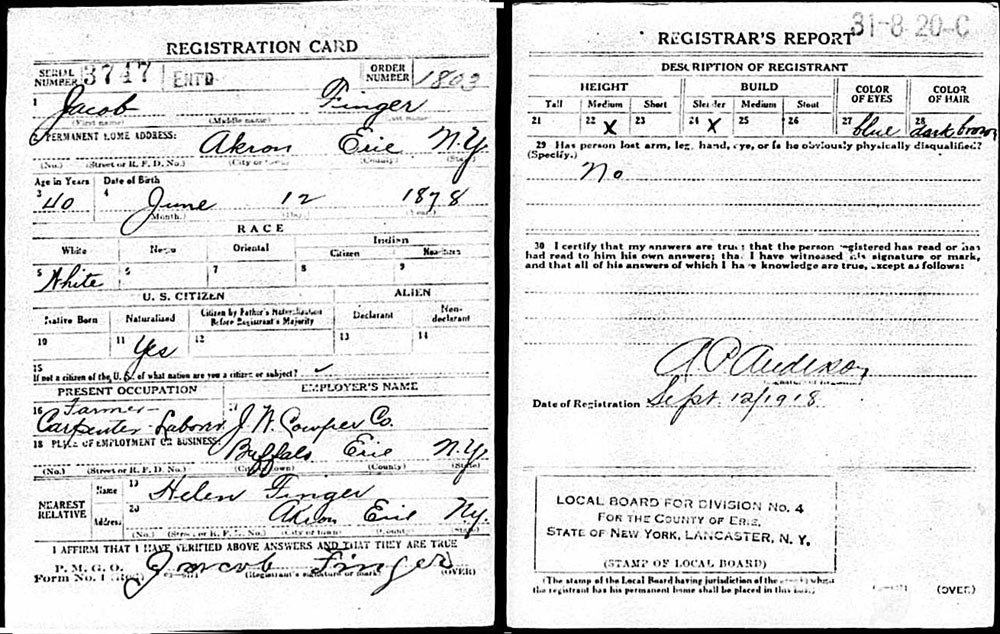 REGISTRATION CARD
SERIAL NUMBER 3747 ENTD ORDER NUMBER 1803
1 Jacob Finger
(First name) (Middle name) (Last name)
2 PERMANENT HOME ADDRESS:
Akron Erie N.Y.
(No.) (Street or R. F. D. No.) (City or town) (County) (State)
Age in Years Date of Birth
3 40 4 June 12 1878
(Month.) (Day.) (Year.)
RACE
White Negro Oriental Indian
Citizen Noncitizen
5 White 6 7 8 9
U. S. CITIZEN ALIEN
Native Born Naturalized Citizen by Father's Naturalization Before Registrant's Majority Declarant Non-declarant
10 11 Yes 12 13 14
15
If not a citizen of the U. S., of what nation are you a citizen or subject?
PRESENT OCCUPATION EMPLOYER'S NAME
16 Farmer- 17
Carpenter-Laborer J. W. Cowper Co.
18 PLACE OF EMPLOYMENT OR BUSINESS:
Buffalo Erie N.Y.
(No.) (Street or R. F. D. No.) (City or town) (County) (State)
NEAREST RELATIVE Name 19 Helen Finger
Address 20 Akron Erie Ny.
(No.) (Street or R. F. D. No.) (City or town) (County) (State)
I AFFIRM THAT I HAVE VERIFIED ABOVE ANSWERS AND THAT THEY ARE TRUE
P. M. G. O.
Form No. 1 (Red) Jacob Finger
(Registrant's signature or mark) (OVER)
31-8-20-C
REGISTRAR'S REPORT
DESCRIPTION OF REGISTRANT
HEIGHT BUILD COLOR OF EYES COLOR OF HAIR
Tall Medium Short Slender Medium Stout
21 22 X 23 24 X 25 26 27 blue 28 dark brown
29 Has person lost arm, leg, hand, eye, or is he obviously physically disqualified?
(Specify.)
No
30 I certify that my answers are true; that the person registered has read or has
had read to him his own answers; that I have witnessed his signature or mark,
and that all of his answers of which I have knowledge are true, except as follows:
A P Anderson
Date of Registration Sept. 12/1918
LOCAL BOARD FOR DIVISION No. 4
FOR THE COUNTY OF ERIE,
STATE OF NEW YORK, LANCASTER, N. Y.
(STAMP OF LOCAL BOARD)
(The stamp of the Local Board having jurisdiction of the area in which
the registrant has his permanent home shall be placed in this box.)
(OVER)